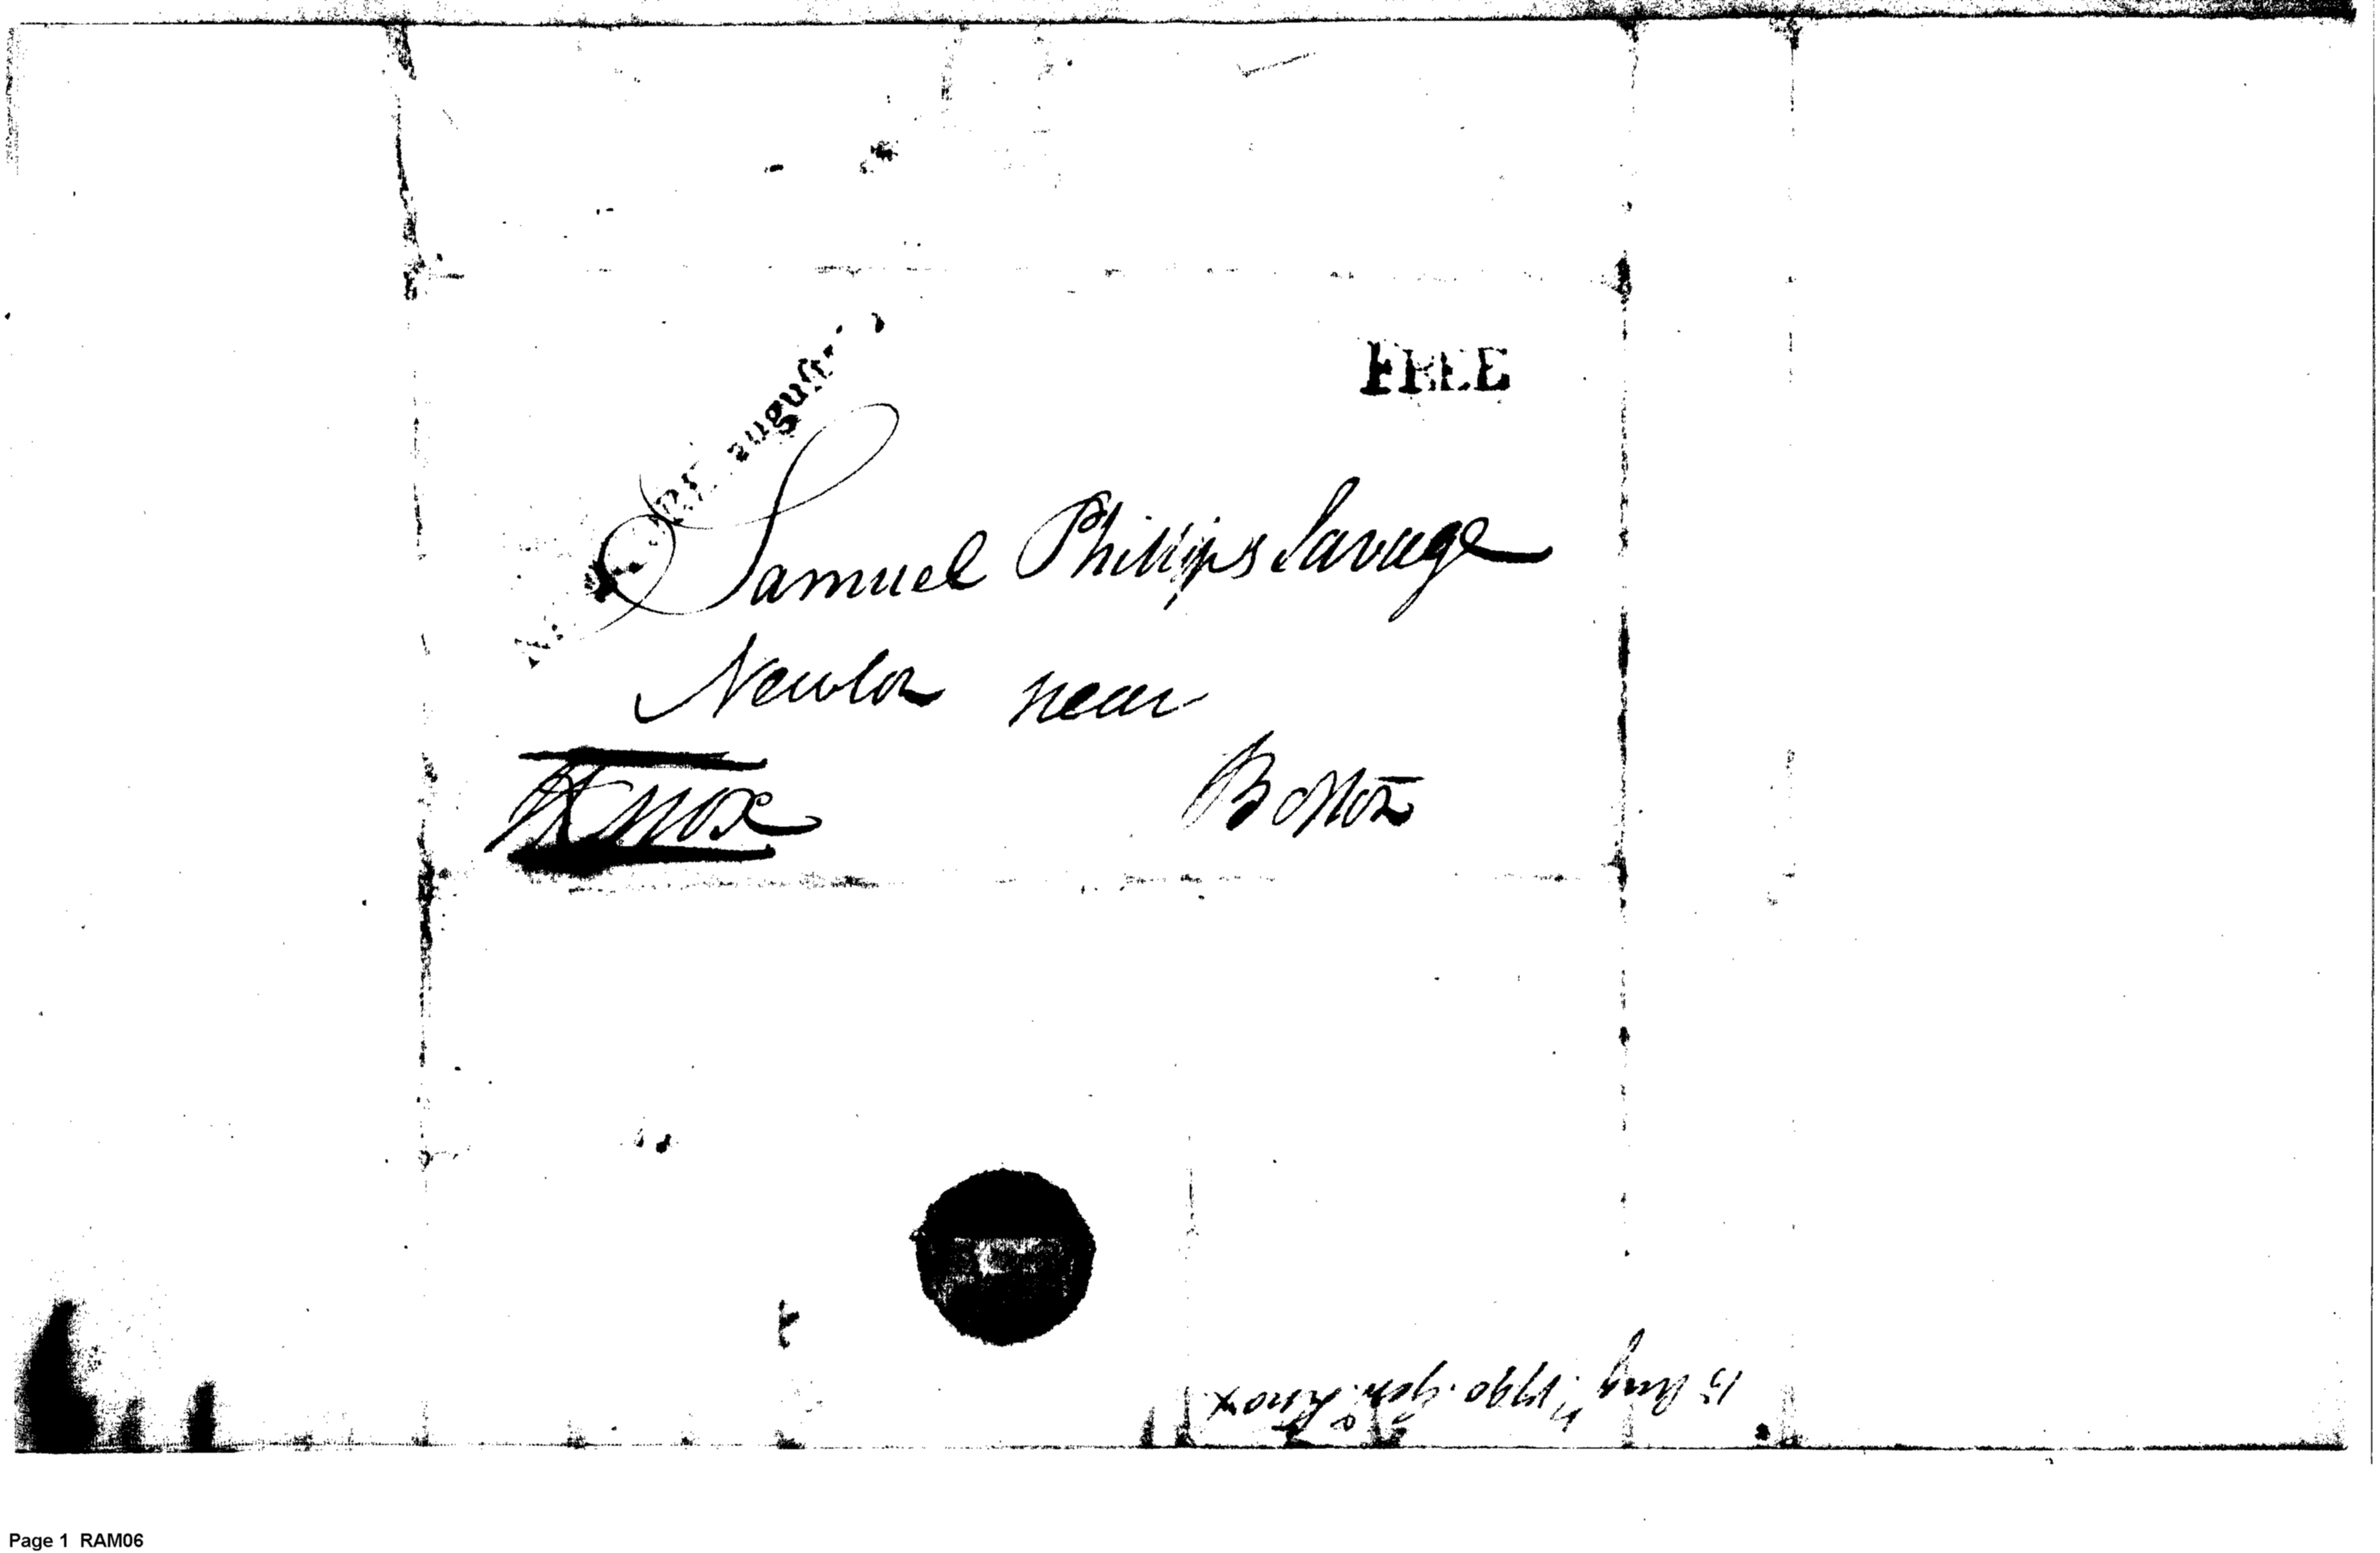 FREE
august
Samuel Phillips Savage
Newton near
Boston
Knox
Aug 1790. Gen. Knox
Page 1 RAM06